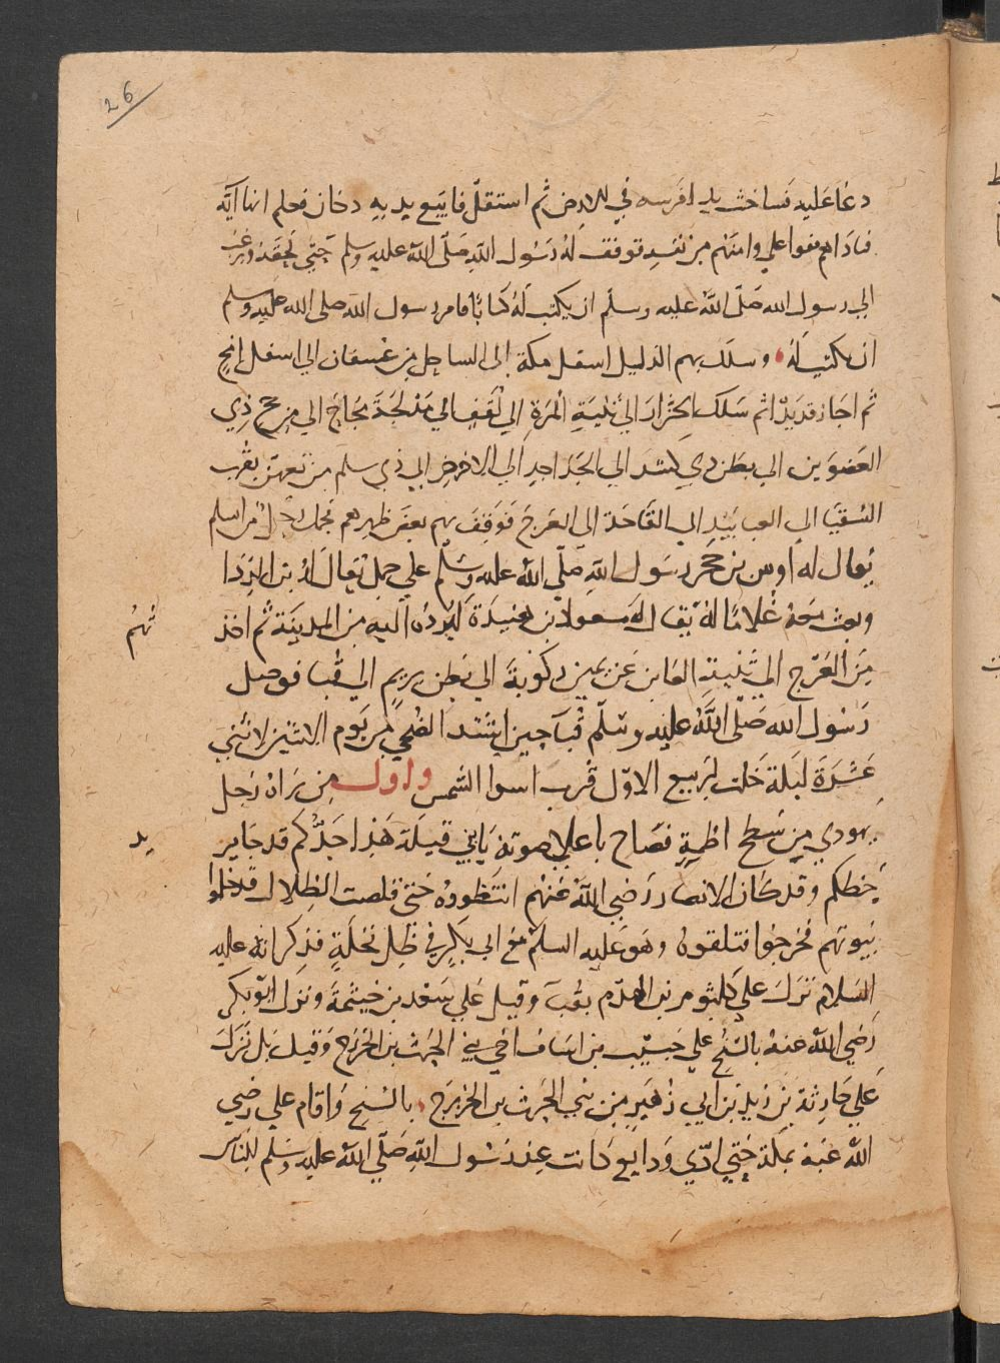 26
دعا عليه فساخت يدا فرسه في الارض ثم استقل فاتبع يديه دخان فعلم انها آية
فناداهم قفوا علي وامنهم من نفسه فوقف له رسول الله صلى الله عليه وسلم حتى لحقه ورغب
الي رسول الله صلى الله عليه وسلم ان يكتب له كتابا فامر رسول الله صلى الله عليه وسلم
ان يكتب له وسلك بهم الدليل اسفل مكة الى الساحل من عسفان الي اسفل امج
ثم اجاز قديدا ثم سلك الخرار الي ثنية المرة الي لقف الي مدلجة مجاج الي مرجح ذي
العضوين الي بطن ذي كشد الي الجداجد الي الاجرد الي ذي سلم من تعهن بقرب
السقيا الي العبابيد الي القاحة الى العرج فوقف بهم بعض ظهرهم فحمل رجل من اسلم
يقال له اوس بن حجر رسول الله صلى الله عليه وسلم علي جمل يقال له بن الردا
وبعث معه غلاما له يقال له مسعود بن هنيدة ليرده اليه من المدينة ثم اخذ
بهم
من العرج الي ثنية العاير عن يمين ركوبة الي بطن ريم الي قبا فوصل
رسول الله صلى الله عليه وسلم قبآ حين اشتد الضحي من يوم الاثنين لاثنتي
عشرة ليلة خلت لربيع الاول قرب استوا الشمس واول من رآه رجل
يهودي من سطح اطمة فصاح باعلي صوته يابني قيلة هذا جدكم قد جا يريد
يد
حظكم وقد كان الانصار رضي الله عنهم انتظروه حتى قلصت الظلال فدخلوا
بيوتهم فخرجوا فتلقوه وهو عليه السلام مع ابي بكر في ظل نخلة فذكر انه عليه
السلام نزل علي كلثوم بن الهدم بقبآ وقيل علي سعد بن خيثمة ونزل ابو بكر
رضي الله عنه بالسنح علي خبيب بن اساف اخي بني الحرث بن الخزرج وقيل بل نزل
علي خارثة بن زيد بن ابي زهير من بني الحرث بن الخزرج بالسنح واقام علي رضي
الله عنه بمكة حتي ادي ودايع كانت عند رسول الله صلى الله عليه وسلم للناس